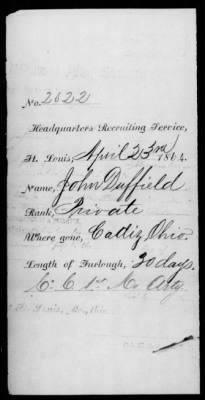 No. 2622
Headquarters Recruiting Service,
St. Louis, April 23rd 1864.
Name, John Duffield
Rank, Private
Where gone, Cadiz, Ohio.
Length of Furlough, 30 days.